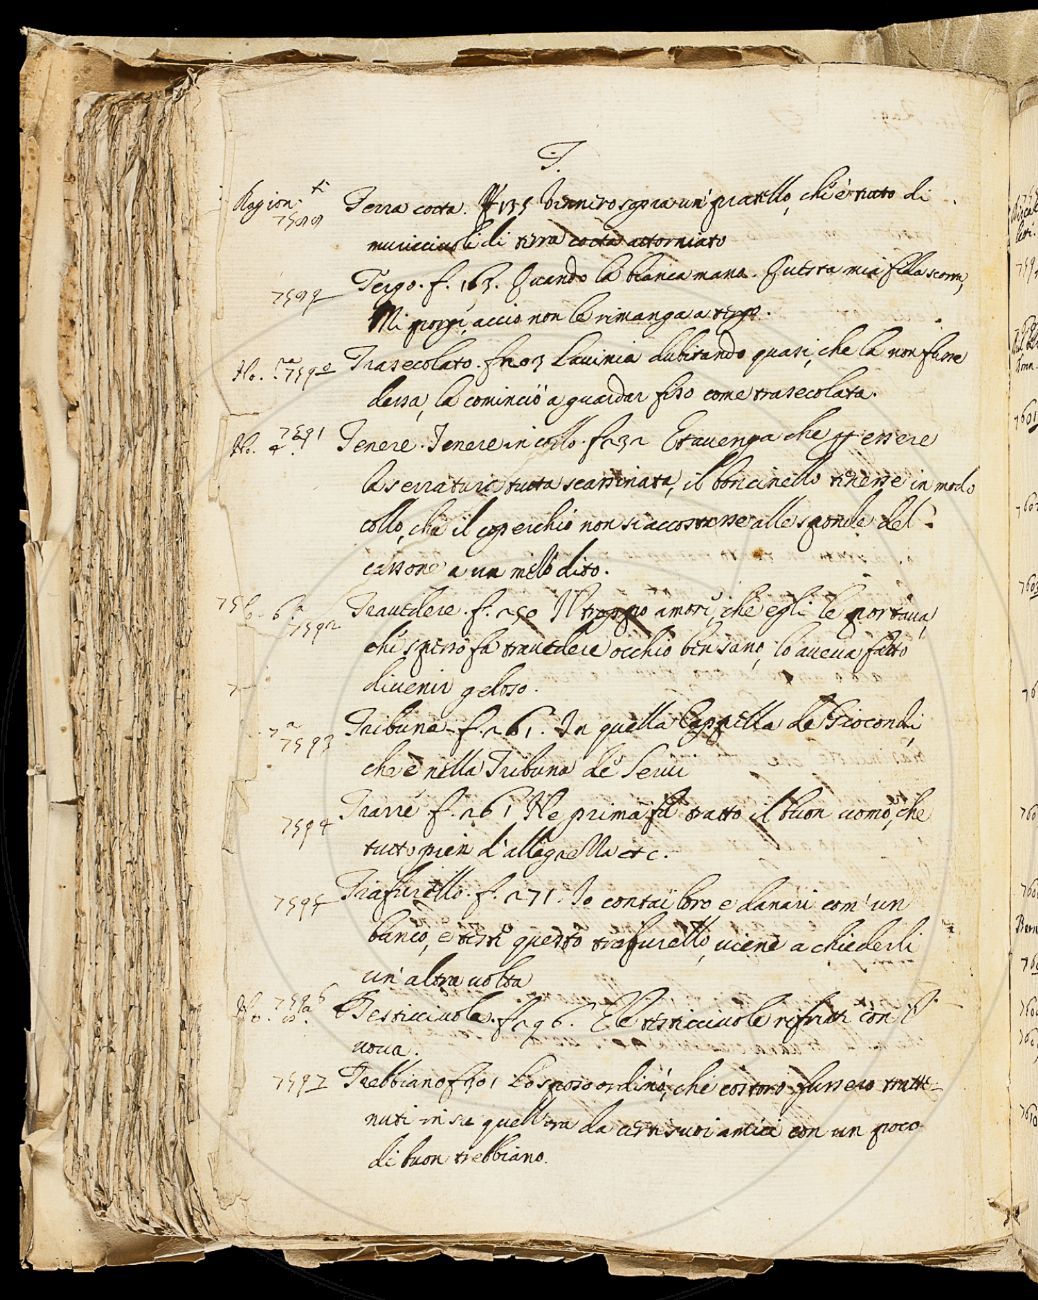 T.
Ragion.ti Terra cotta. f 135 vennero sopra un pratello, ch'è tutto di
7588
muricciuoli di terra cotta attorniato
7589 Tergo. f. 163. Quando la bianca mano. Questa mia fida scorta,
Mi porgi, acciò non le rimanga a tergo.
No. 7590 Trasecolato. f 203 Lavinia dubitando quasi, che la non fusse
dessa, la cominciò a guardar fiso come trasecolata.
No. 7591 Tenere. Tenere in collo. f 232 Et avenga che per essere
la serratura tutta scassinata, il boncinello tenesse in modo
collo, che il coperchio non si accostasse alle sponde del
cassone a un mezzo dito.
7592 Travedere. f. 250 Il troppo amore, che egli le portava,
che spesso fa travedere occhio ben sano, lo aveva fatto
divenir geloso.
7593 Tribuna. f. 261. In quella Cappella de' Giocondi,
che è nella Tribuna de' Servi
7594 Trarre f. 261 Ne prima fu tratto il buon uomo, che
tutto pien d'allegrezza etc.
7595 Trafurello. f. 271. Io contai loro e danari com' un
banco, e questo trafurello, viene a chiederli
un' altra volta
No. 7596 Testicciuole. f 296. E le testicciuole rifritte con l'
uova.
7597 Trebbiano f 301 Lo sposo ordinò, che costoro fussero tratte-
nuti in su quell'ora da certi suoi amici con un poco
di buon trebbiano.